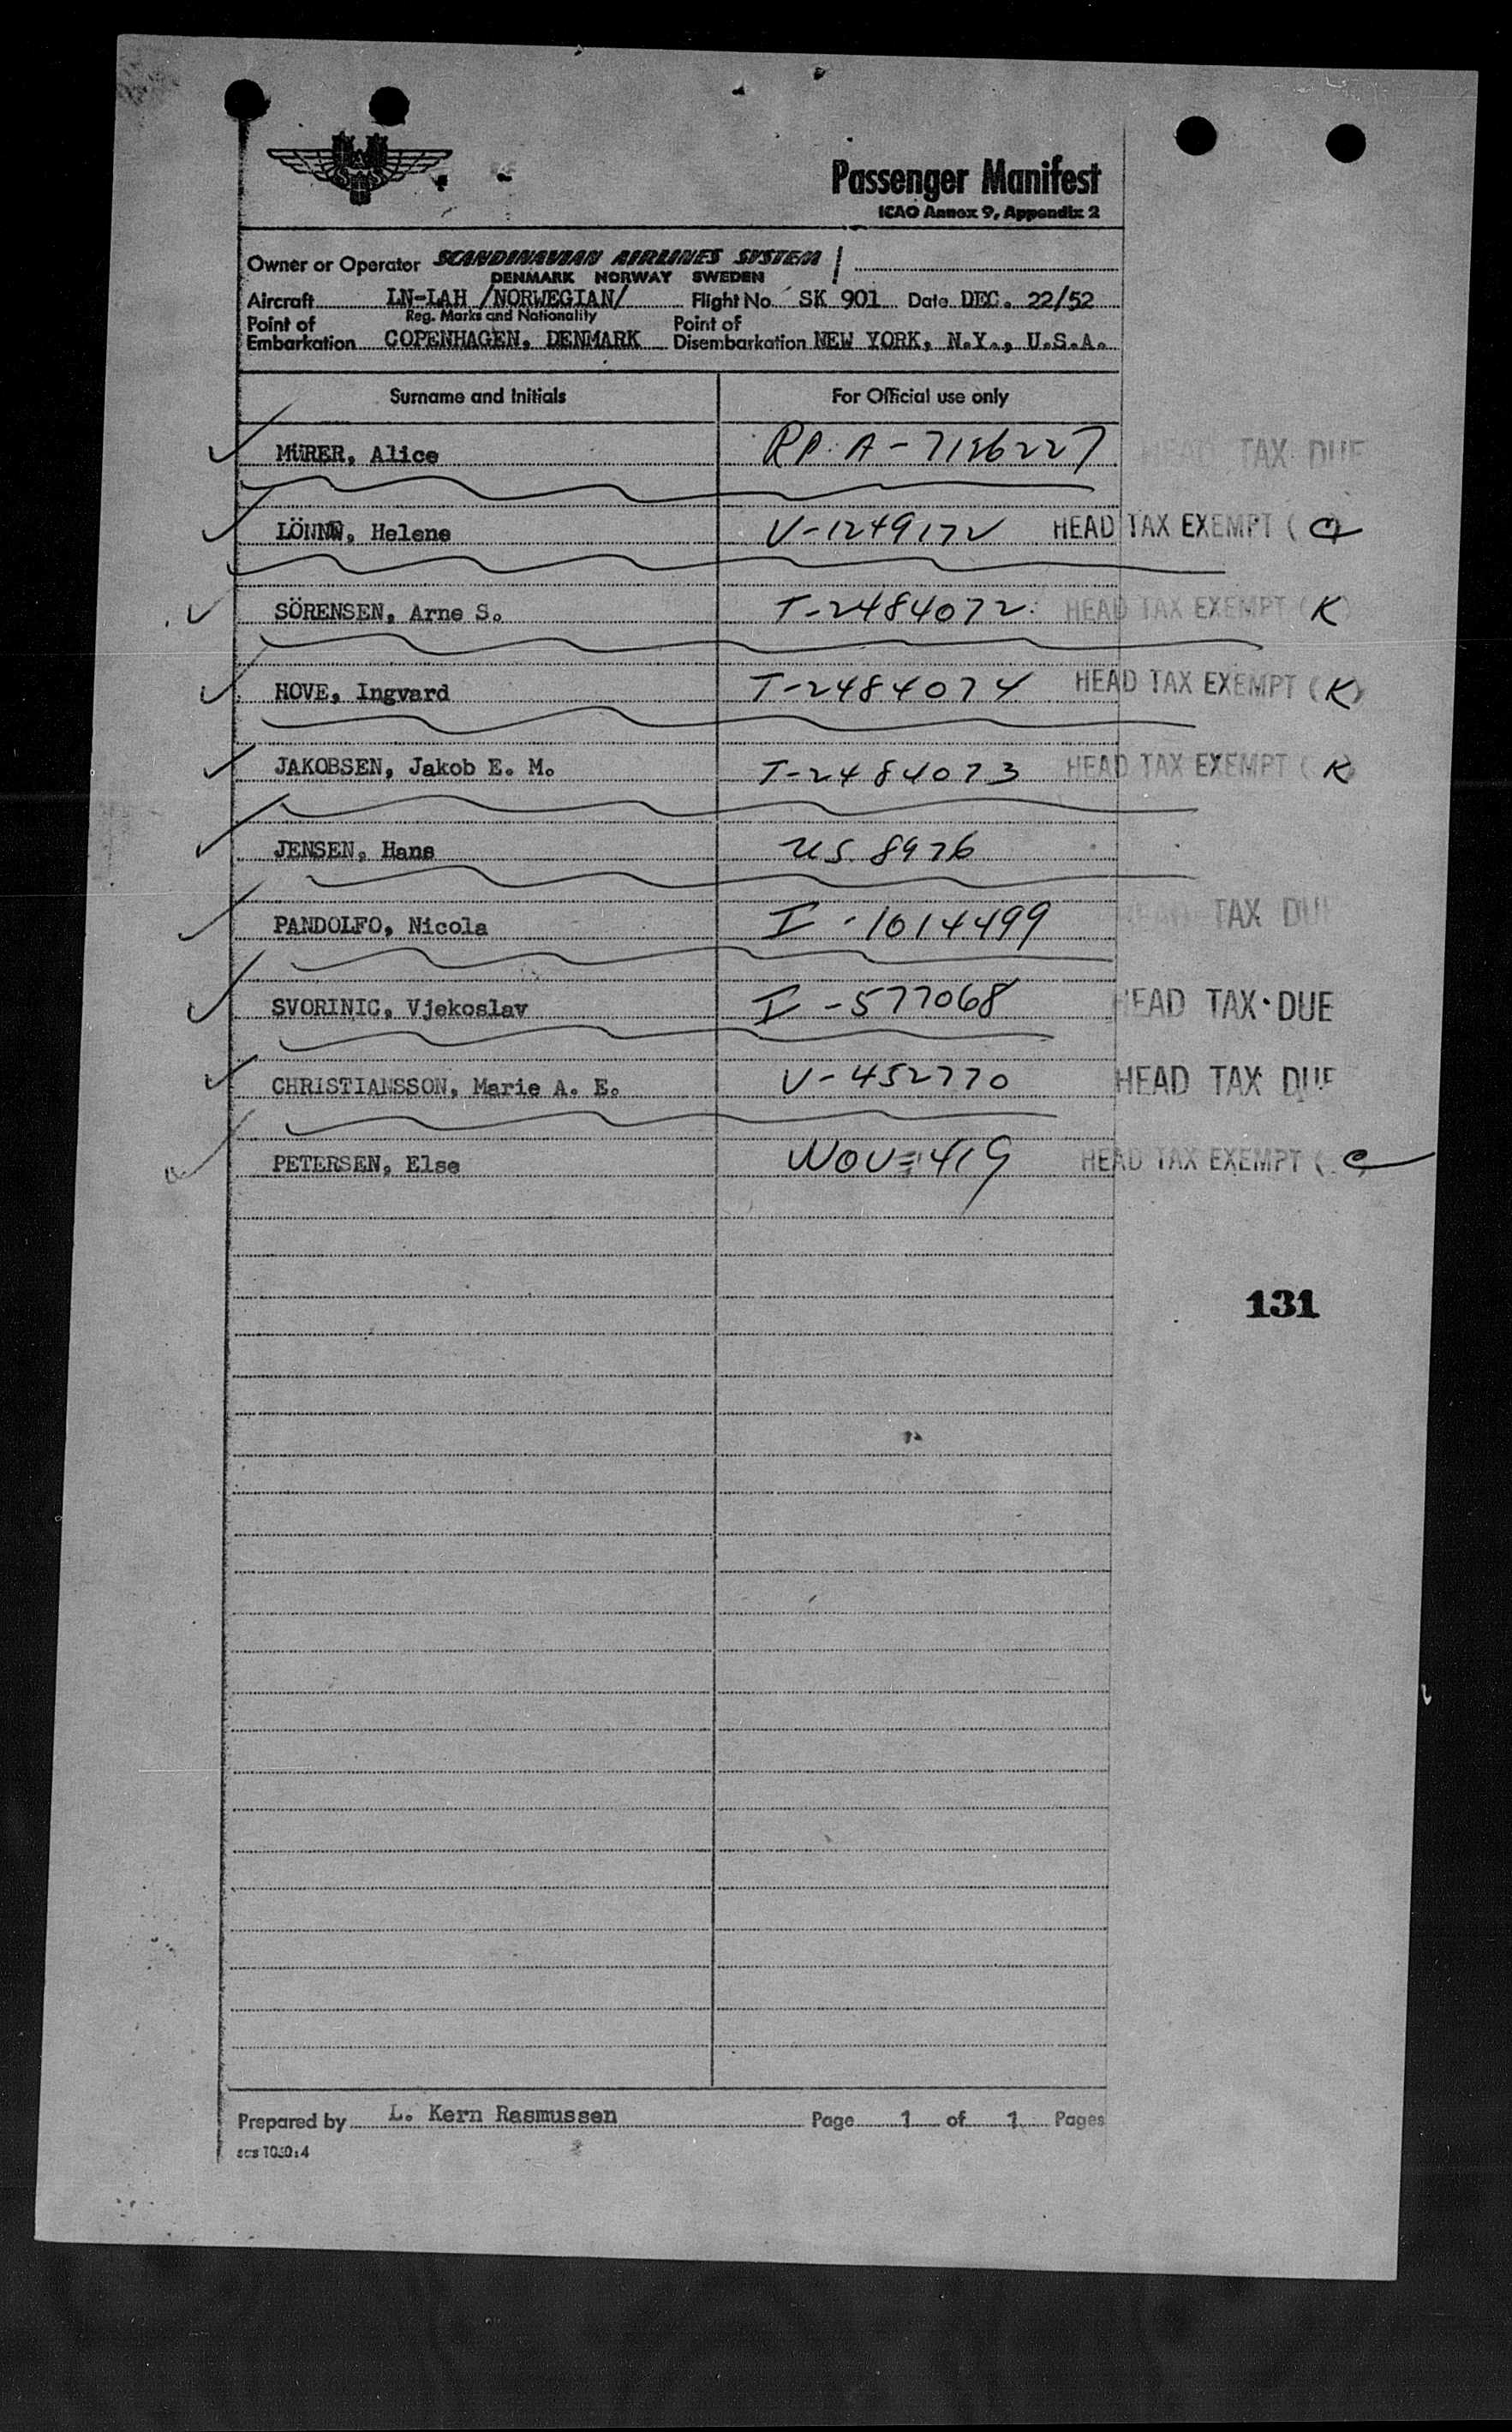 SAS
Passenger Manifest
ICAO Annex 9, Appendix 2
Owner or Operator SCANDINAVIAN AIRLINES SYSTEM
DENMARK NORWAY SWEDEN
Aircraft LN-LAH /NORWEGIAN/ Flight No. SK 901 Date DEC. 22/52
Reg. Marks and Nationality
Point of Embarkation COPENHAGEN, DENMARK Point of Disembarkation NEW YORK, N.Y., U.S.A.
Surname and Initials For Official use only
MÜRER, Alice RP. A-7126227 HEAD TAX DUE
Helene V-1249172 HEAD TAX EXEMPT (
SÖRENSEN, Arne S. T-2484072 HEAD TAX EXEMPT (K)
HOVE, Ingvard T-2484074 HEAD TAX EXEMPT (K)
JAKOBSEN, Jakob E. M. T-2484073 HEAD TAX EXEMPT (K)
JENSEN, Hans US. 8976
PANDOLFO, Nicola I-1014499 HEAD TAX DUE
SVORINIC, Vjekoslav I-577068 HEAD TAX DUE
CHRISTIANSSON, Marie A. E. V-452770 HEAD TAX DUE
PETERSEN, Else NOV=419 HEAD TAX EXEMPT ( C
131
Prepared by L. Kern Rasmussen Page 1 of 1 Pages
scs 1030:4